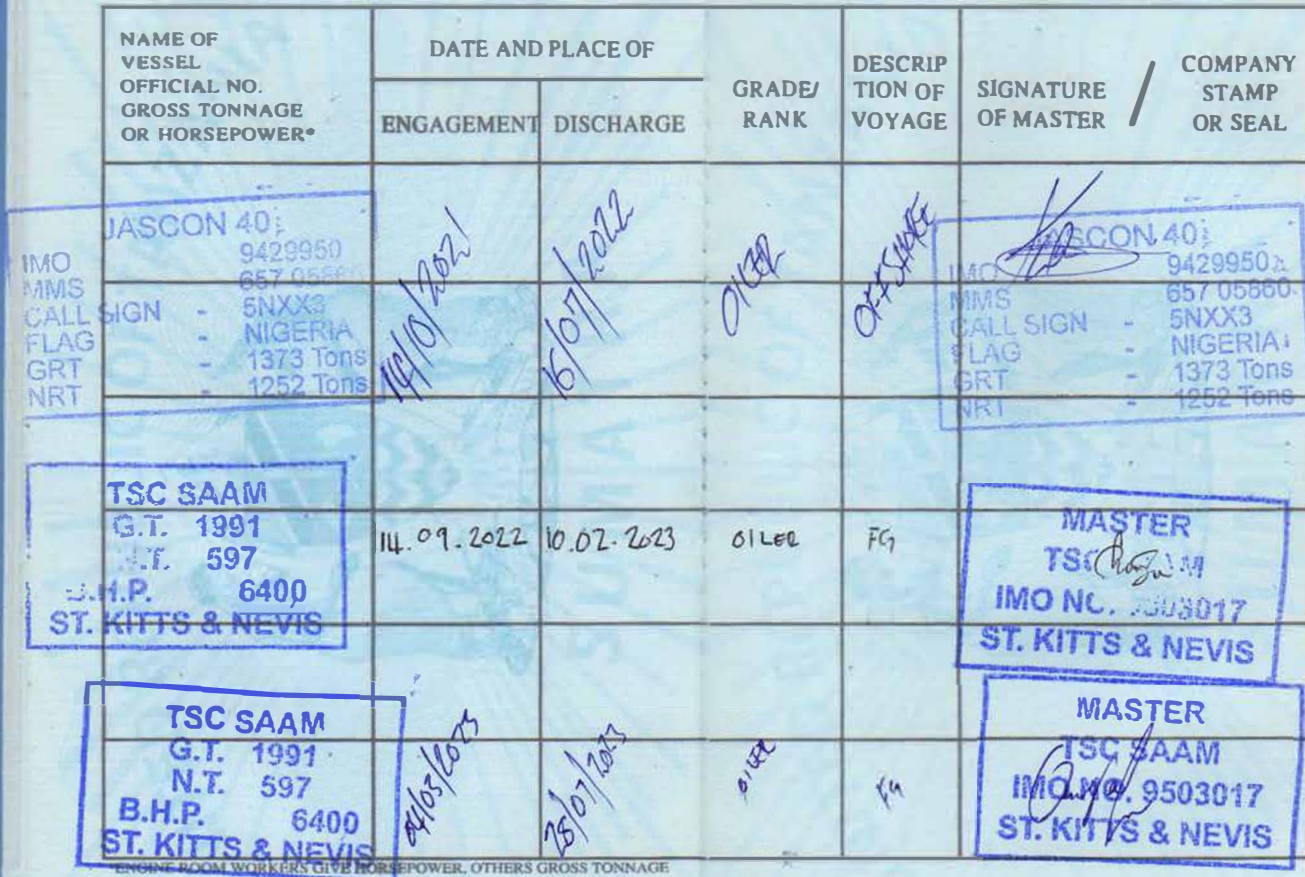 NAME OF
VESSEL
OFFICIAL NO.
GROSS TONNAGE
OR HORSEPOWER*
DATE AND PLACE OF
ENGAGEMENT
DISCHARGE
GRADE/
RANK
DESCRIP
TION OF
VOYAGE
SIGNATURE
OF MASTER
/
COMPANY
STAMP
OR SEAL
JASCON 40
IMO 9429950
MMS 657 05860
CALL SIGN - 5NXX3
FLAG - NIGERIA
GRT - 1373 Tons
NRT - 1252 Tons
14/10/2021
16/07/2022
OILER
OFFSHORE
JASCON 40
IMO 9429950
MMS 657 05860
CALL SIGN - 5NXX3
FLAG - NIGERIA
GRT - 1373 Tons
NRT - 1252 Tons
TSC SAAM
G.T. 1991
N.T. 597
B.H.P. 6400
ST. KITTS & NEVIS
14.09.2022
10.02.2023
OILER
FG
MASTER
TSC SAAM
IMO NO. 9503017
ST. KITTS & NEVIS
TSC SAAM
G.T. 1991
N.T. 597
B.H.P. 6400
ST. KITTS & NEVIS
04/03/2023
28/07/2023
OILER
FG
MASTER
TSC SAAM
IMO NO. 9503017
ST. KITTS & NEVIS
*ENGINE ROOM WORKERS GIVE HORSEPOWER, OTHERS GROSS TONNAGE